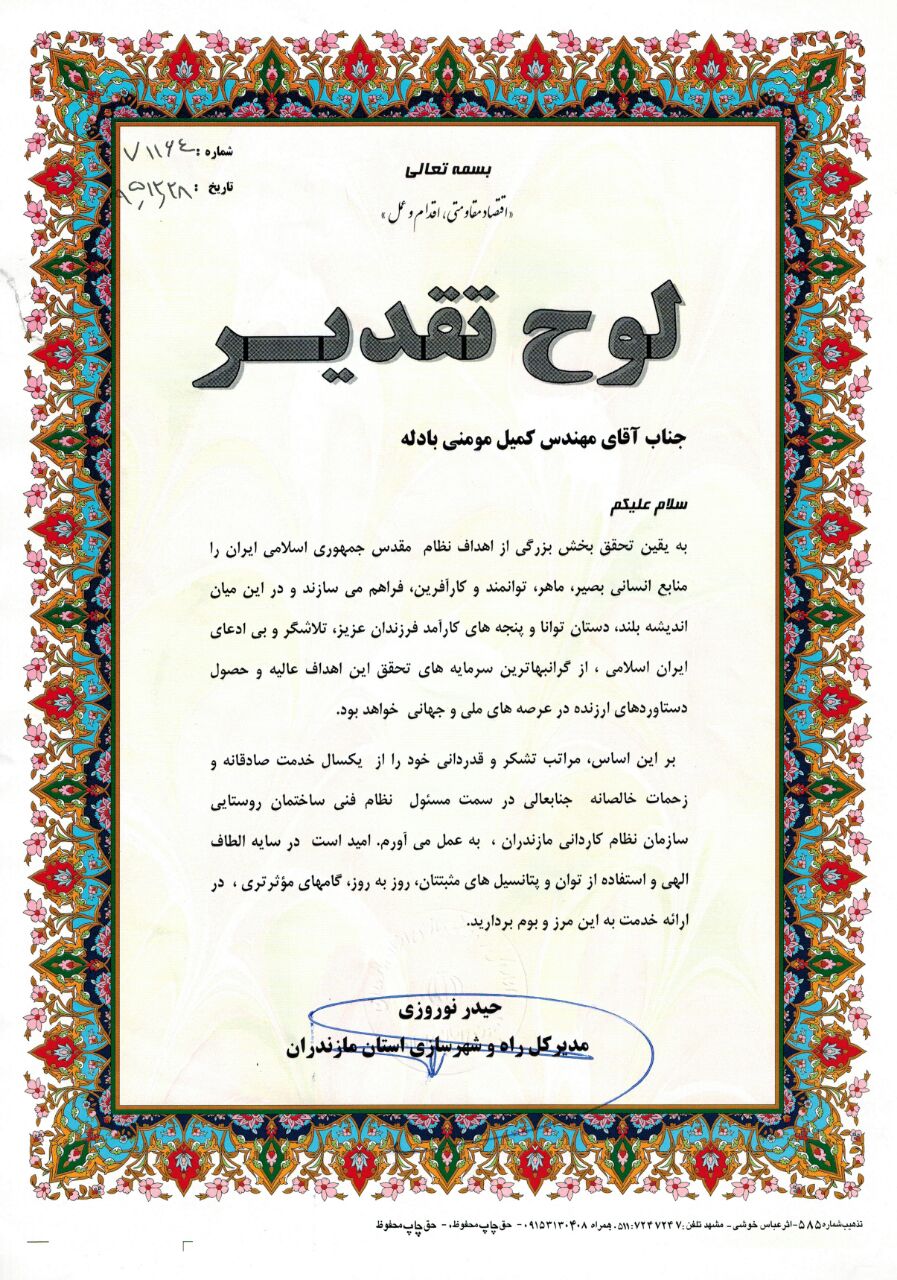 بسمه تعالی
شماره : ۷۱۱۶٤
«اقتصاد مقاومتی، اقدام و عمل»
تاریخ :
لوح تقدیر
جناب آقای مهندس کمیل مومنی بادله
سلام علیکم
به یقین تحقق بخش بزرگی از اهداف نظام مقدس جمهوری اسلامی ایران را
منابع انسانی بصیر، ماهر، توانمند و کارآفرین، فراهم می سازند و در این میان
اندیشه بلند، دستان توانا و پنجه های کارآمد فرزندان عزیز، تلاشگر و بی ادعای
ایران اسلامی ، از گرانبهاترین سرمایه های تحقق این اهداف عالیه و حصول
دستاوردهای ارزنده در عرصه های ملی و جهانی خواهد بود.
بر این اساس، مراتب تشکر و قدردانی خود را از یکسال خدمت صادقانه و
زحمات خالصانه جنابعالی در سمت مسئول نظام فنی ساختمان روستایی
سازمان نظام کاردانی مازندران ، به عمل می آورم. امید است در سایه الطاف
الهی و استفاده از توان و پتانسیل های مثبتتان، روز به روز، گامهای مؤثرتری ، در
ارائه خدمت به این مرز و بوم بردارید.
حیدر نوروزی
مدیرکل راه و شهرسازی استان مازندران
تذهیب شماره ۵۸۵-اثر عباس خوشی- مشهد تلفن: ۷۲۴۷۲۴۷: ۰۵۱۱ همراه ۰۹۱۵۳۱۳۰۴۰۸ - حق چاپ محفوظ، - حق چاپ محفوظ